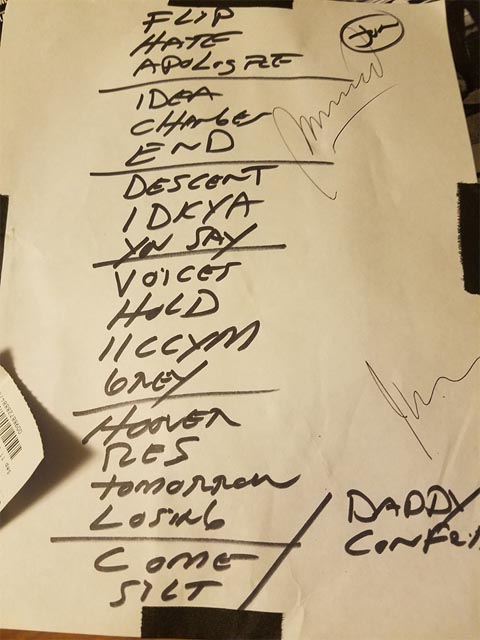 FLIP
HATE
APOLOGIZE
IDEA
CHANGES
END
DESCENT
IDKYA
YOU SAY
VOICES
HOLD
IICCYM
GREY
HOOVER
RES
TOMORROW
LOSING
COME
SILT
DADDY